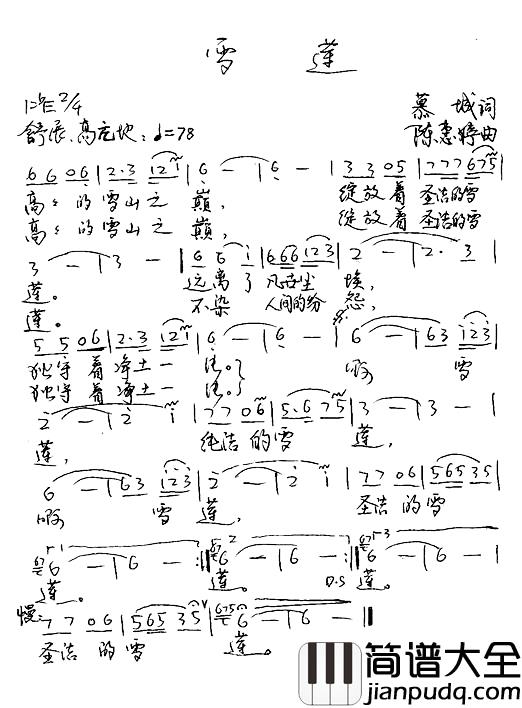 雪 莲
1=♭E 2/4
慕城词
舒展、高亢地 ♩=78
陈惠婷曲
6 6 0 6 | 2·3 1 2 i | 6 - | 6 - | 3 3 0 5 | 7 7 7 6 7 5 |
高高的雪山之 巅， 绽放着 圣洁的雪
高高的雪山之 巅， 绽放着 圣洁的雪
3 - | 3 - | 6 6 i | 6 6 6 1 2 3 | 2 - | 2· 3 |
莲。 远离了 凡世尘 埃，
莲。 不染 人间的纷 怨，
5 5 0 6 | 2·3 1 2 i | 6 - | 6 - | 6 - | 6 3 1 2 3 |
独守着净土一 啊 雪
独守着净土一
2 - | 2 i | 7 7 0 6 | 5·6 7 5 | 3 - | 3 - |
莲， 纯洁的雪 莲，
6 - | 6 3 1 2 3 | 2 - | 2 i | 7 7 0 6 | 5 6 5 3 5 |
啊 雪 莲， 圣洁的雪
6 - | 6 - :‖ 6 - | 6 - :‖ 6 - | 6 - |
莲。 莲。 D.S 莲。
慢 7 7 0 6 | 5 6 5 3 5 | 6 - | 6 - ‖
圣洁的雪 莲。
简谱大全
jianpudq.com